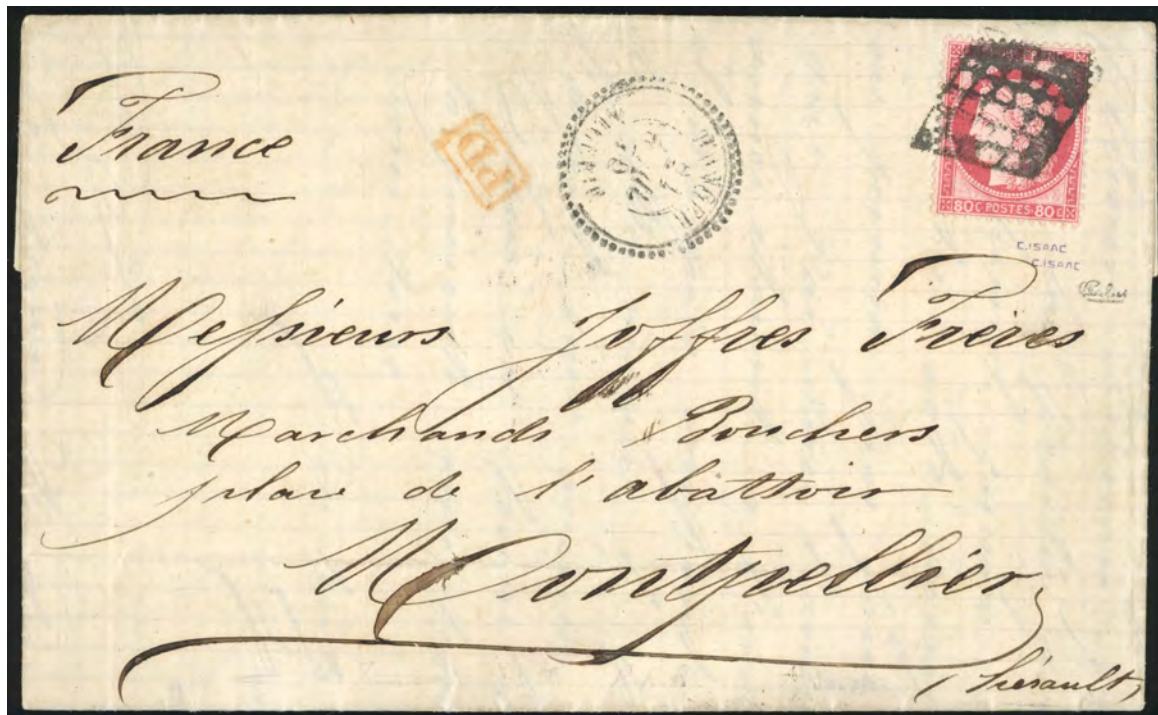 France
PD
80C POSTES 80C
C.ISAAC
C.ISAAC
Messieurs Joffres Frères
Marchands Bouchers
place de l'abattoir
Montpellier
(hérault)